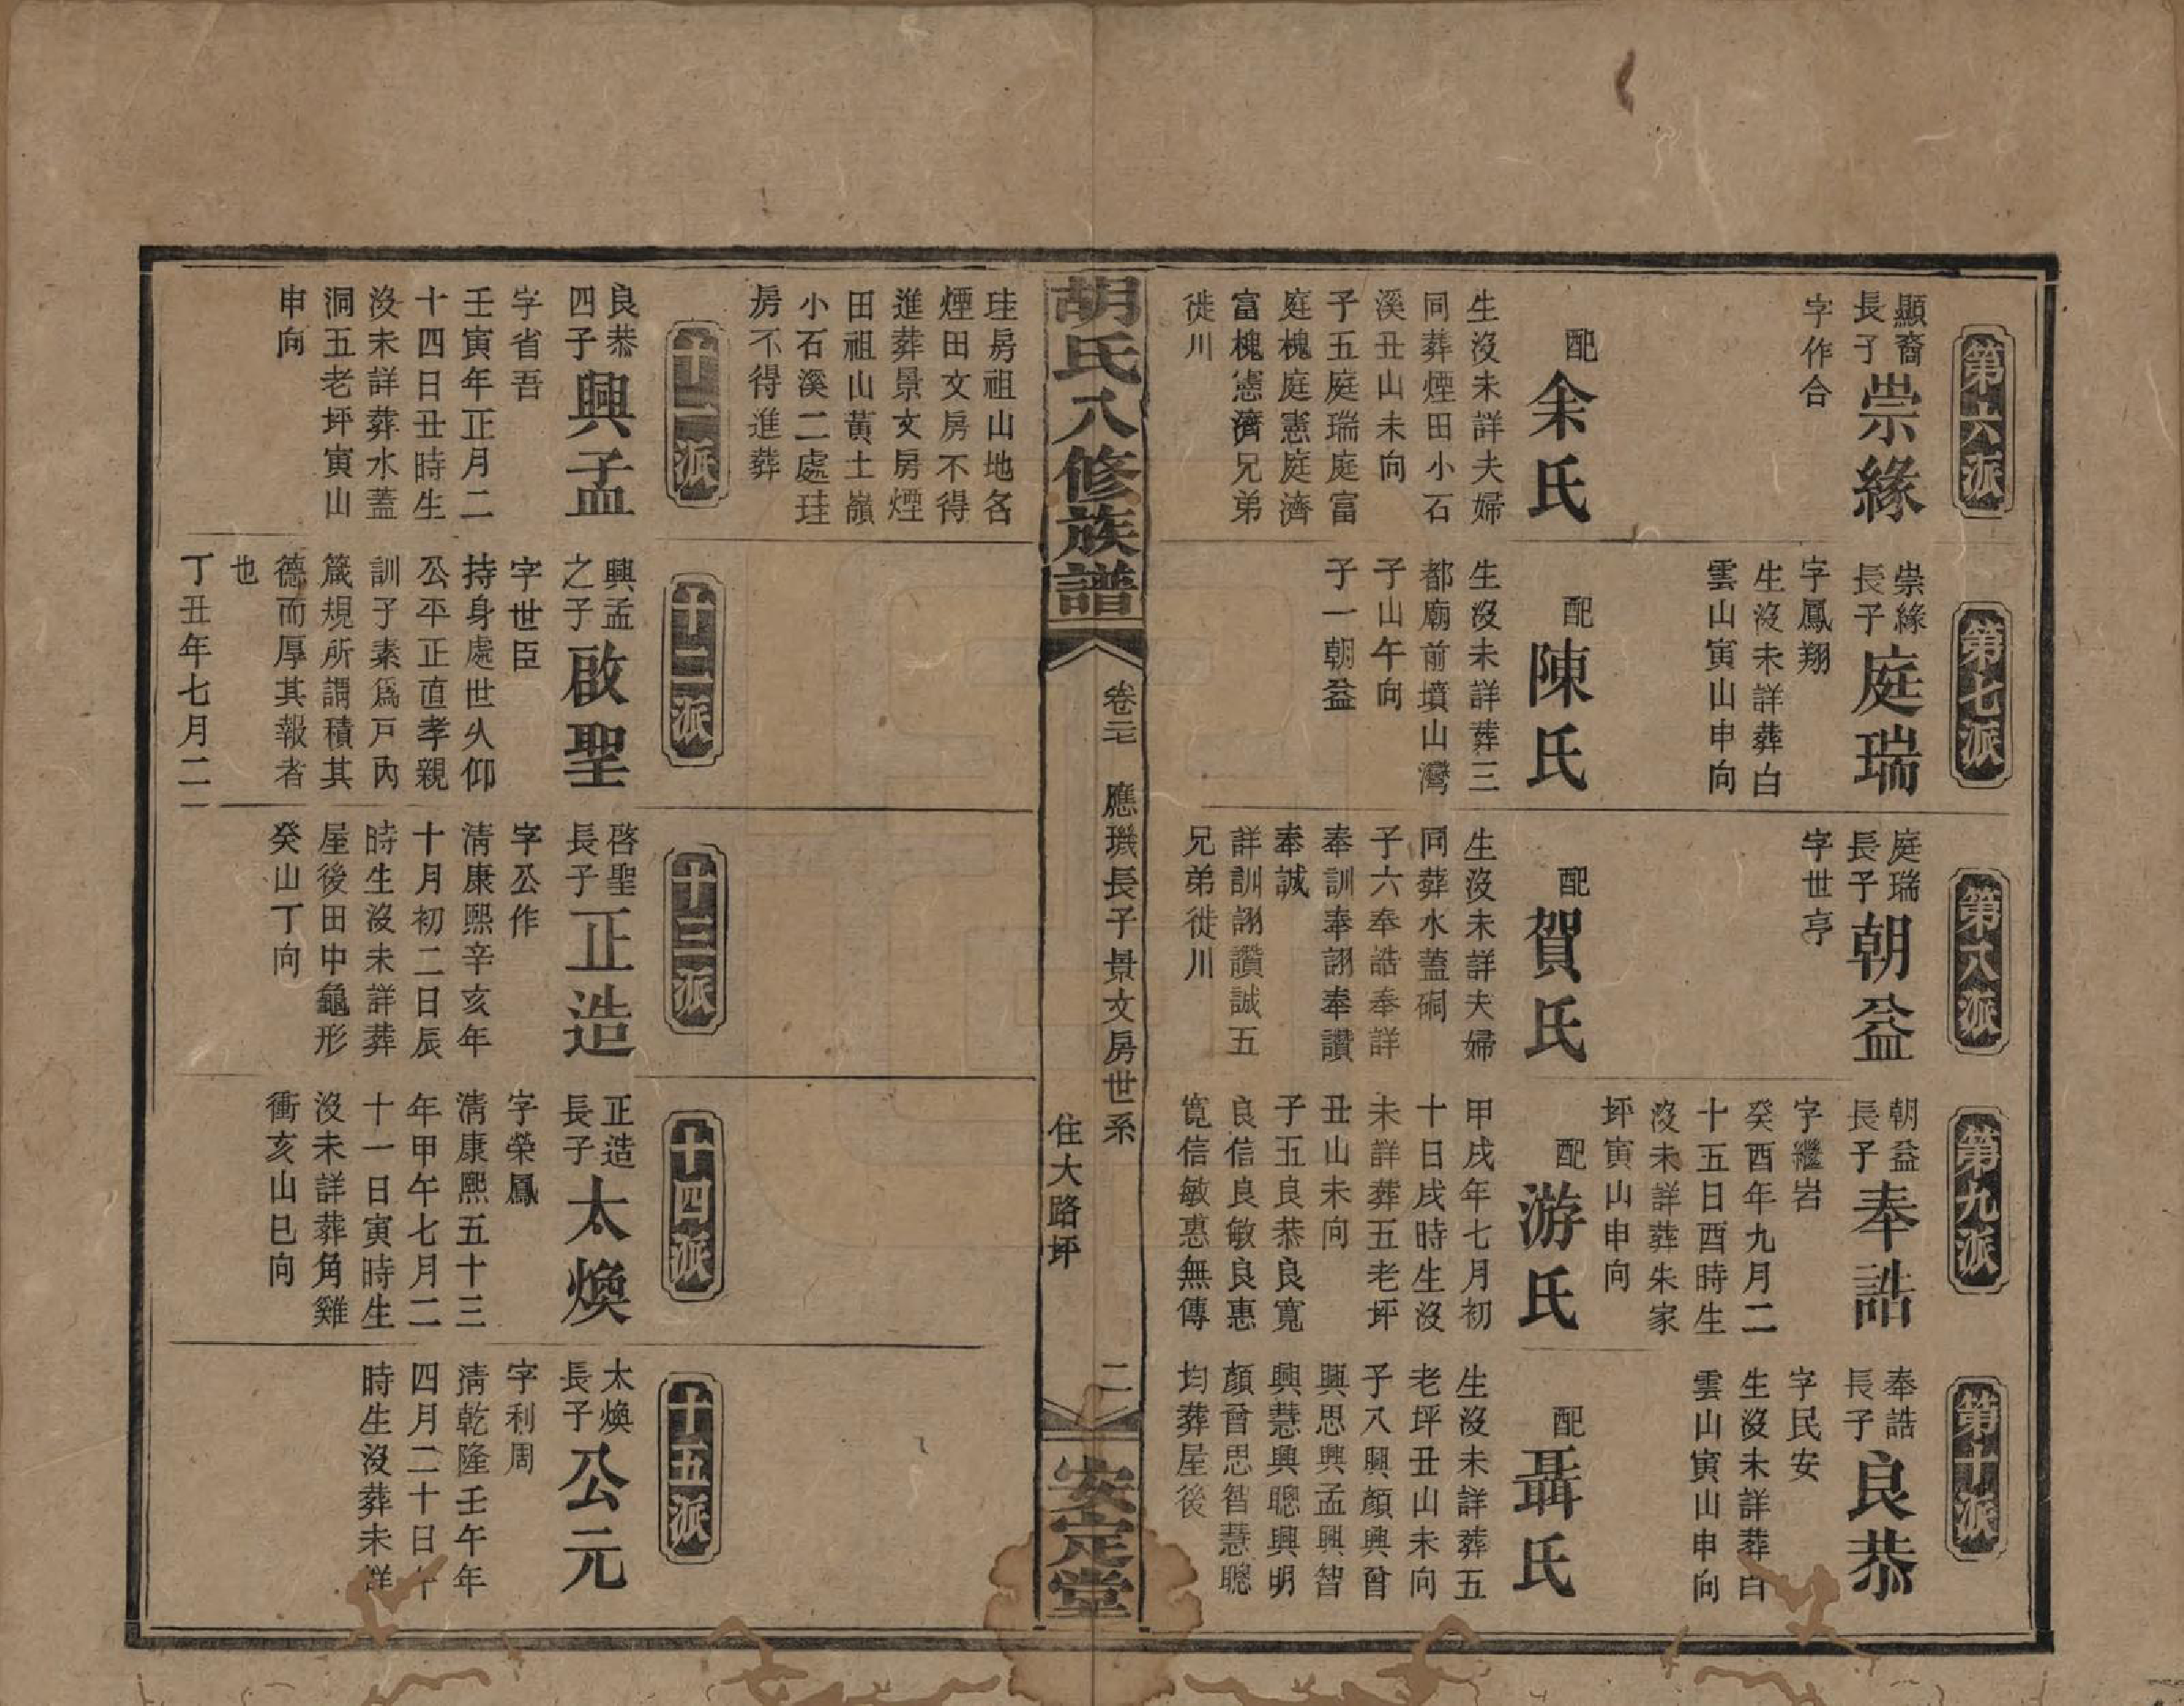 第六派
顯裔
長子
崇緣
字作合
配
余氏
生沒未詳夫婦
同葬煙田小石
溪丑山未向
子五庭瑞庭富
庭槐庭憲庭濟
富槐憲濟兄弟
徙川
第七派
崇緣
長子
庭瑞
字鳳翔
生沒未詳葬白
雲山寅山申向
配
陳氏
生沒未詳葬三
都廟前墳山灣
子山午向
子一朝益
第八派
庭瑞
長子
朝益
字世亭
配
賀氏
生沒未詳夫婦
同葬水蓋硐
子六奉誥奉詳
奉訓奉詡奉讚
奉誠
詳訓詡讚誠五
兄弟徙川
第九派
朝益
長子
奉誥
字繼岩
癸酉年九月二
十五日酉時生
沒未詳葬朱家
坪寅山申向
配
游氏
甲戌年七月初
十日戌時生沒
未詳葬五老坪
丑山未向
子五良恭良寬
良信良敏良惠
寬信敏惠無傳
第十派
奉誥
長子
良恭
字民安
生沒未詳葬白
雲山寅山申向
配
聶氏
生沒未詳葬五
老坪丑山未向
子八興顏興曾
興思興孟興智
興慧興聰興明
顏曾思智慧聰
均葬屋後
胡氏八修族譜
卷三 應璣長子景文房世系
住大路坪
二
安定堂
珪房祖山地名
煙田文房不得
進葬景文房煙
田祖山黃土嶺
小石溪二處珪
房不得進葬
十一派
良恭
四子
興孟
字省吾
壬寅年正月二
十四日丑時生
沒未詳葬水蓋
洞五老坪寅山
申向
十二派
興孟
之子
啟聖
字世臣
持身處世久仰
公平正直孝親
訓子素為戶內
箴規所謂積其
德而厚其報者
也
丁丑年七月二
十三派
啓聖
長子
正造
字公作
清康熙辛亥年
十月初二日辰
時生沒未詳葬
屋後田中龜形
癸山丁向
十四派
正造
長子
太煥
字榮鳳
清康熙五十三
年甲午七月二
十一日寅時生
沒未詳葬角雞
衝亥山巳向
十五派
太煥
長子
公元
字利周
清乾隆壬午年
四月二十日午
時生沒葬未詳